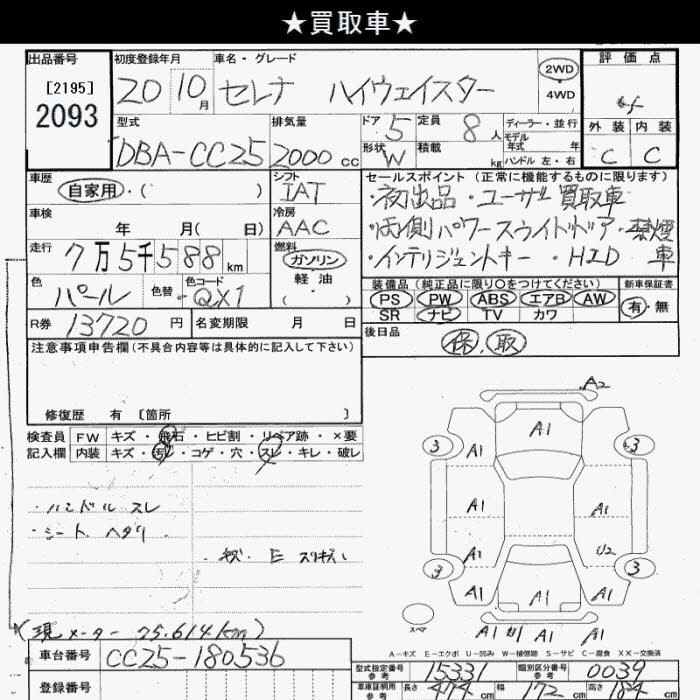 ★買取車★
出品番号 初度登録年月 車名・グレード 評価点
[2195] 2093
20 10月 セレナ ハイウェイスター 2WD 4WD
型式 排気量 ドア 5 定員 8人 ディーラー・並行
外装 内装
モデル年式 年
DBA-CC25 2000cc 形状 W 積載 kg ハンドル 左・右 C C
車歴 シフト セールスポイント (正常に機能するものに限ります)
自家用・( ) IAT ・初出品・ユーザー買取車
車検 冷房 ・両側パワースライドドア・禁煙車
年 月( 日) AAC ・インテリジェントキー・HID
走行 7万5千588km 燃料 ガソリン 軽油 ( )
装備品 (純正品に限り○をつけてください) 新車保証書
色 パール 色替 色コード QX1 PS PW ABS エアB AW 有・無
SR ナビ TV カワ
R券 13720円 名変期限 月 日 後日品 保、取
注意事項申告欄(不具合内容等は具体的に記入して下さい)
修復歴 有 〔箇所 〕
検査員 FW キズ・飛石・ヒビ割・リペア跡・×要
記入欄 内装 キズ・汚レ・コゲ・穴・スレ・キレ・破レ
・ハンドル スレ
・シート ヘタリ
A2
A1
3 A1 3
A1 A1
A1 U2
3 3
A1 A1 A1
スペア
A1 A1 A1
(現メーター 75.614km)
A-キズ E-エクボ U-凹み W-補修跡 S-サビ C-腐食 XX-交換済
車台番号 CC25-180536
型式指定番号 参考 15331 類別区分番号 参考 0039
登録番号
車庫証明用 参考 長さ 474cm 幅 172cm 高さ 184cm